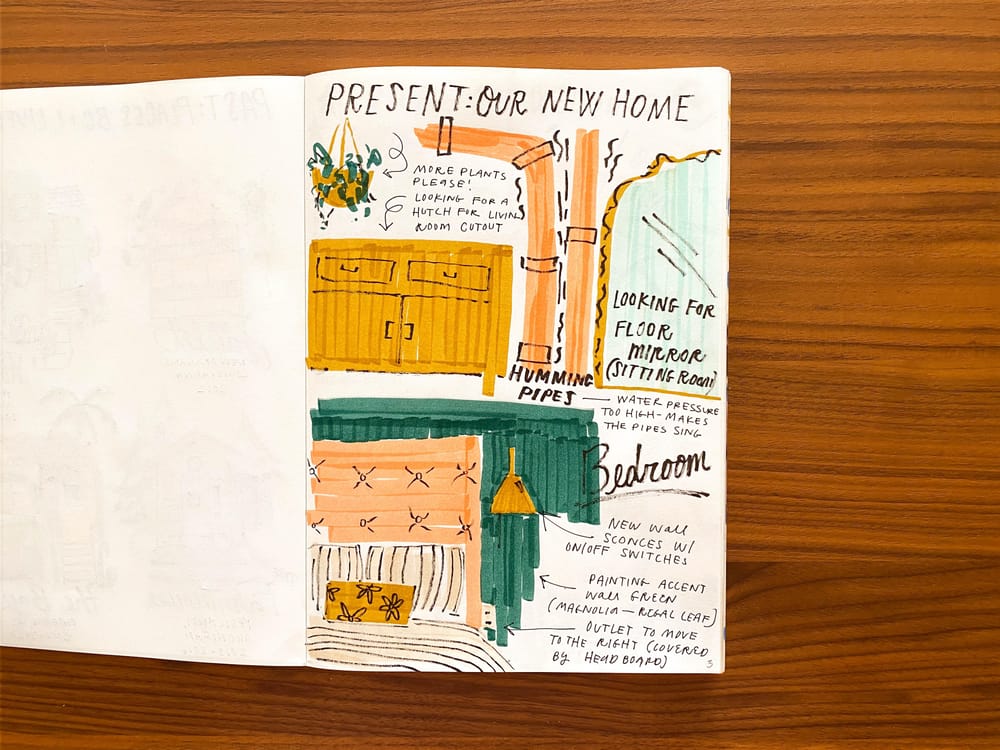 PRESENT: OUR NEW HOME
MORE PLANTS
PLEASE!
LOOKING FOR A
HUTCH FOR LIVING
ROOM CUTOUT
LOOKING FOR
FLOOR
MIRROR
(SITTING ROOM)
HUMMING
PIPES
WATER PRESSURE
TOO HIGH - MAKES
THE PIPES SING
Bedroom
NEW WALL
SCONCES W/
ON/OFF SWITCHES
PAINTING ACCENT
WALL GREEN
(MAGNOLIA - REGAL LEAF)
OUTLET TO MOVE
TO THE RIGHT (COVERED
BY HEADBOARD)
5